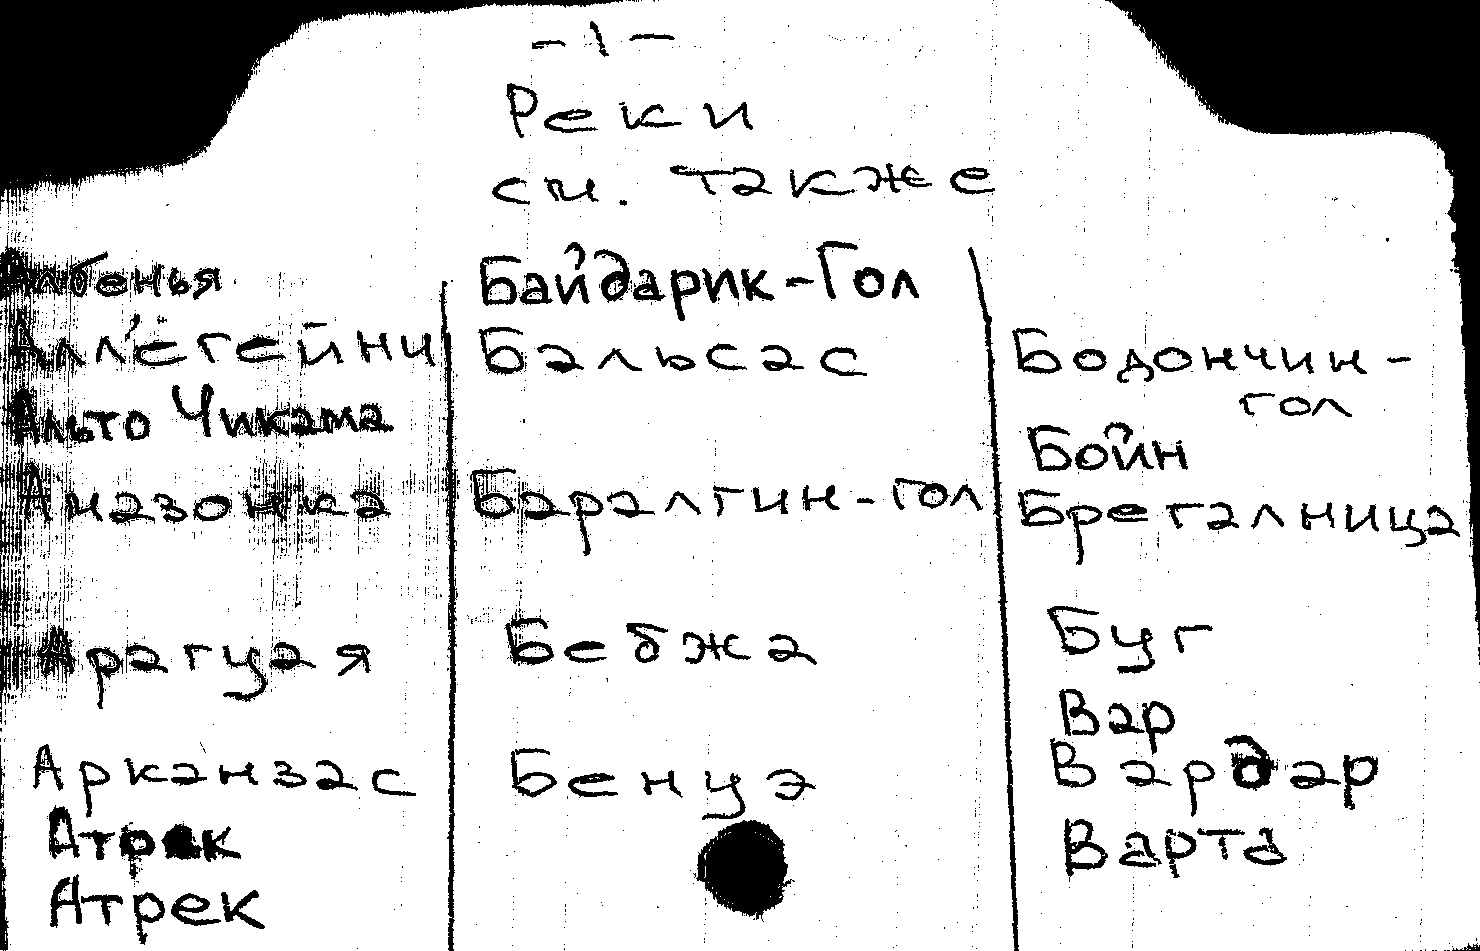 - 1 -
Реки
см. также
Аллегейни
Альто Чикама
Амазонка
Арагуая
Арканзас
Атрек
Атрек
Байдарик-Гол
Бальсас
Баралгин-гол
Бебжа
Бенуэ
Бодончин-
гол
Бойн
Брегалница
Буг
Вар
Вардар
Варта